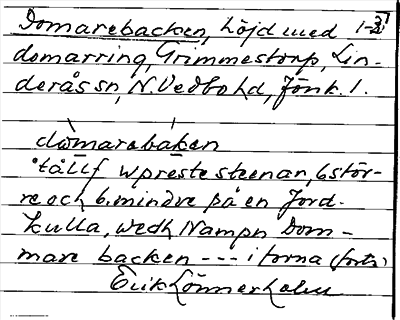 Domarebacken, höjd med 1-3
domarring, Grimmestorp, Lin-
derås sn, N. Vedbo hd, Jönk. l.
dωmarabakan
"tållf wpreste steenar, 6 stör-
re och 6. mindre på en Jord-
kulla, wedh Nampn Dom-
mare backen --- i forna (forts)
Erik Lönnerholm